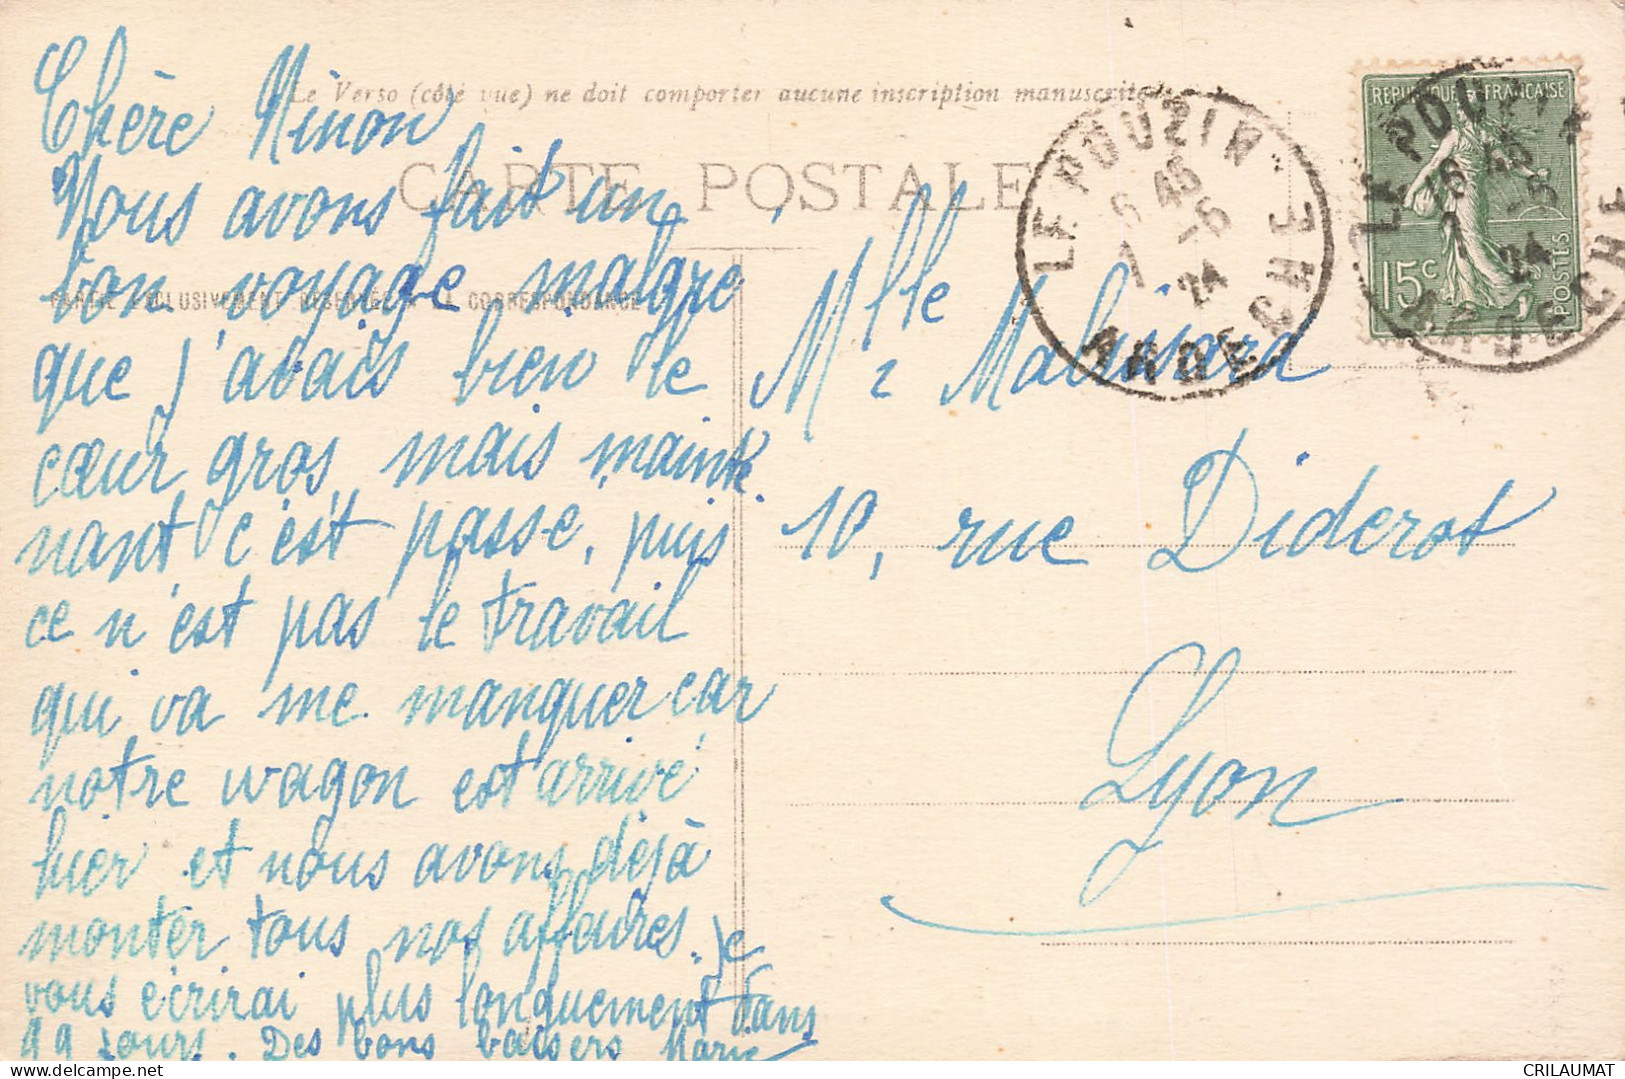 Le Verso (côté vue) ne doit comporter aucune inscription manuscrite
CARTE POSTALE
PARTIE EXCLUSIVEMENT RÉSERVÉE A LA CORRESPONDANCE
Chère Ninon
Nous avons fait un
bon voyage malgre
que j'avais bien le
cœur gros, mais mainte
nant c'est passe, puis
ce n'est pas le travail
qui va me manquer car
notre wagon est arrivé
hier et nous avons déjà
monter tous nos affaires. Je
vous écrirai plus longuement dans
qq jours. Des bons baisers Marie
Mlle Malussard
10, rue Diderot
Lyon
LE POUZIN
6 45
1 -5
24
ARDECHE
REPUBLIQUE FRANÇAISE
15c
POSTES
LE POUZIN
6 45
1 -5
24
ARDECHE
delcampe.net
CRILAUMAT